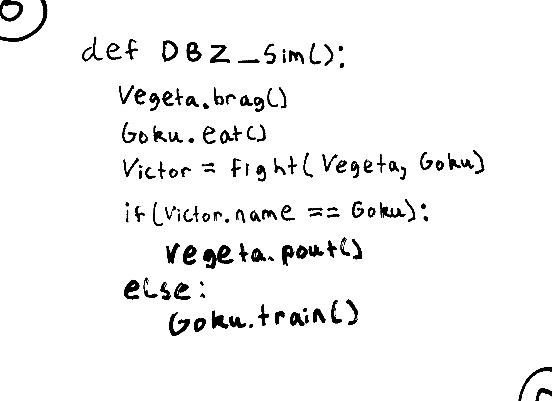 def DBZ_Sim():
Vegeta.brag()
Goku.eat()
Victor = Fight(Vegeta, Goku)
if(Victor.name == Goku):
Vegeta.pout()
else:
Goku.train()